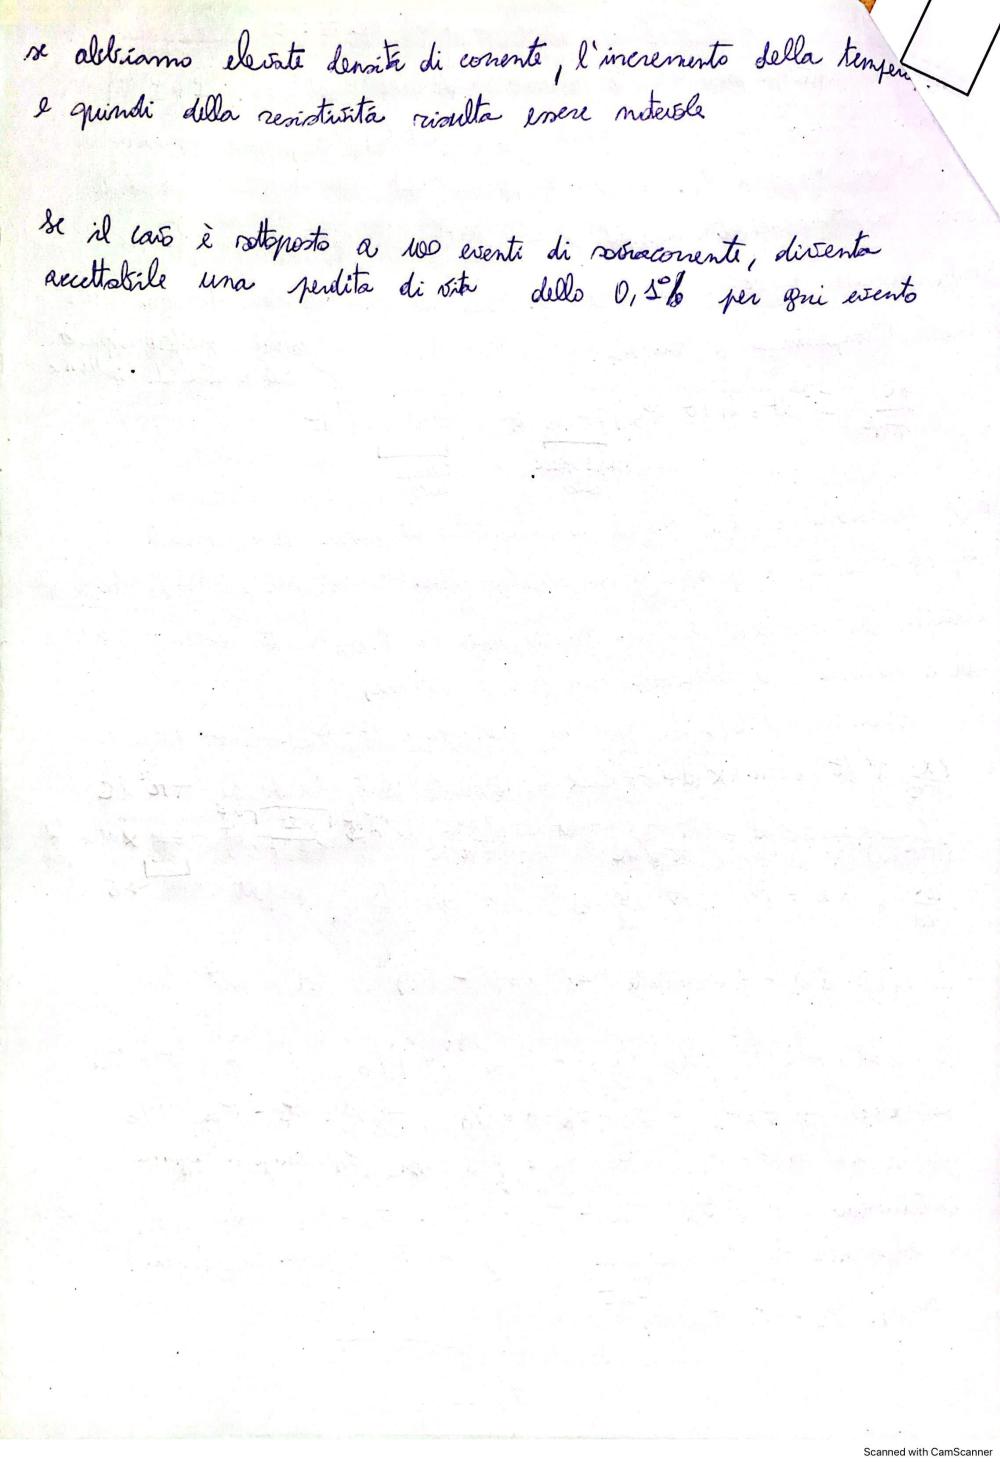 se abbiamo elevate densità di corrente, l'incremento della temper
e quindi della resistività risulta essere notevole
se il cavo è sottoposto a 100 eventi di sovracorrente, diventa
accettabile una perdita di vita dello 0,1% per ogni evento
Scanned with CamScanner